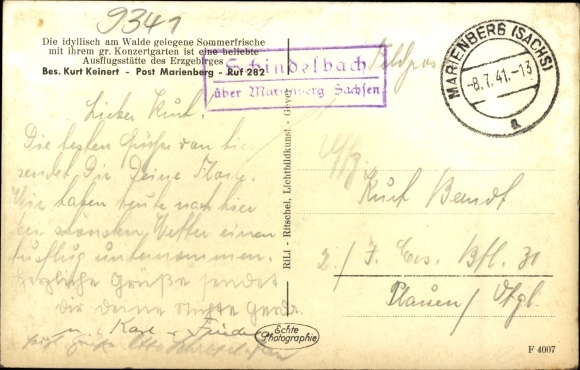 9341
Die idyllisch am Walde gelegene Sommerfrische
mit ihrem gr. Konzertgarten ist eine beliebte
Ausflugsstätte des Erzgebirges
Bes. Kurt Keinert - Post Marienberg - Ruf 282
Schindelbach
über Marienberg Sachsen
Feldpost
MARIENBERG (SACHS)
-8.7.41.-13
a
Lieber Kurt.
Die besten Grüße von hier
sendet Dir Deine
Wir haben heute nach hier
bei schönsten Wetter einen
Ausflug unternommen.
Herzliche Grüße sendet
dir deine Gerda.
u. Karl u.
RiLi - Ritschel, Lichtbildkunst - Geyer
Kurt Berndt
2./ J. Ers. Btl. 31
Plauen / Vtgl.
Echte
Photographie
F 4007